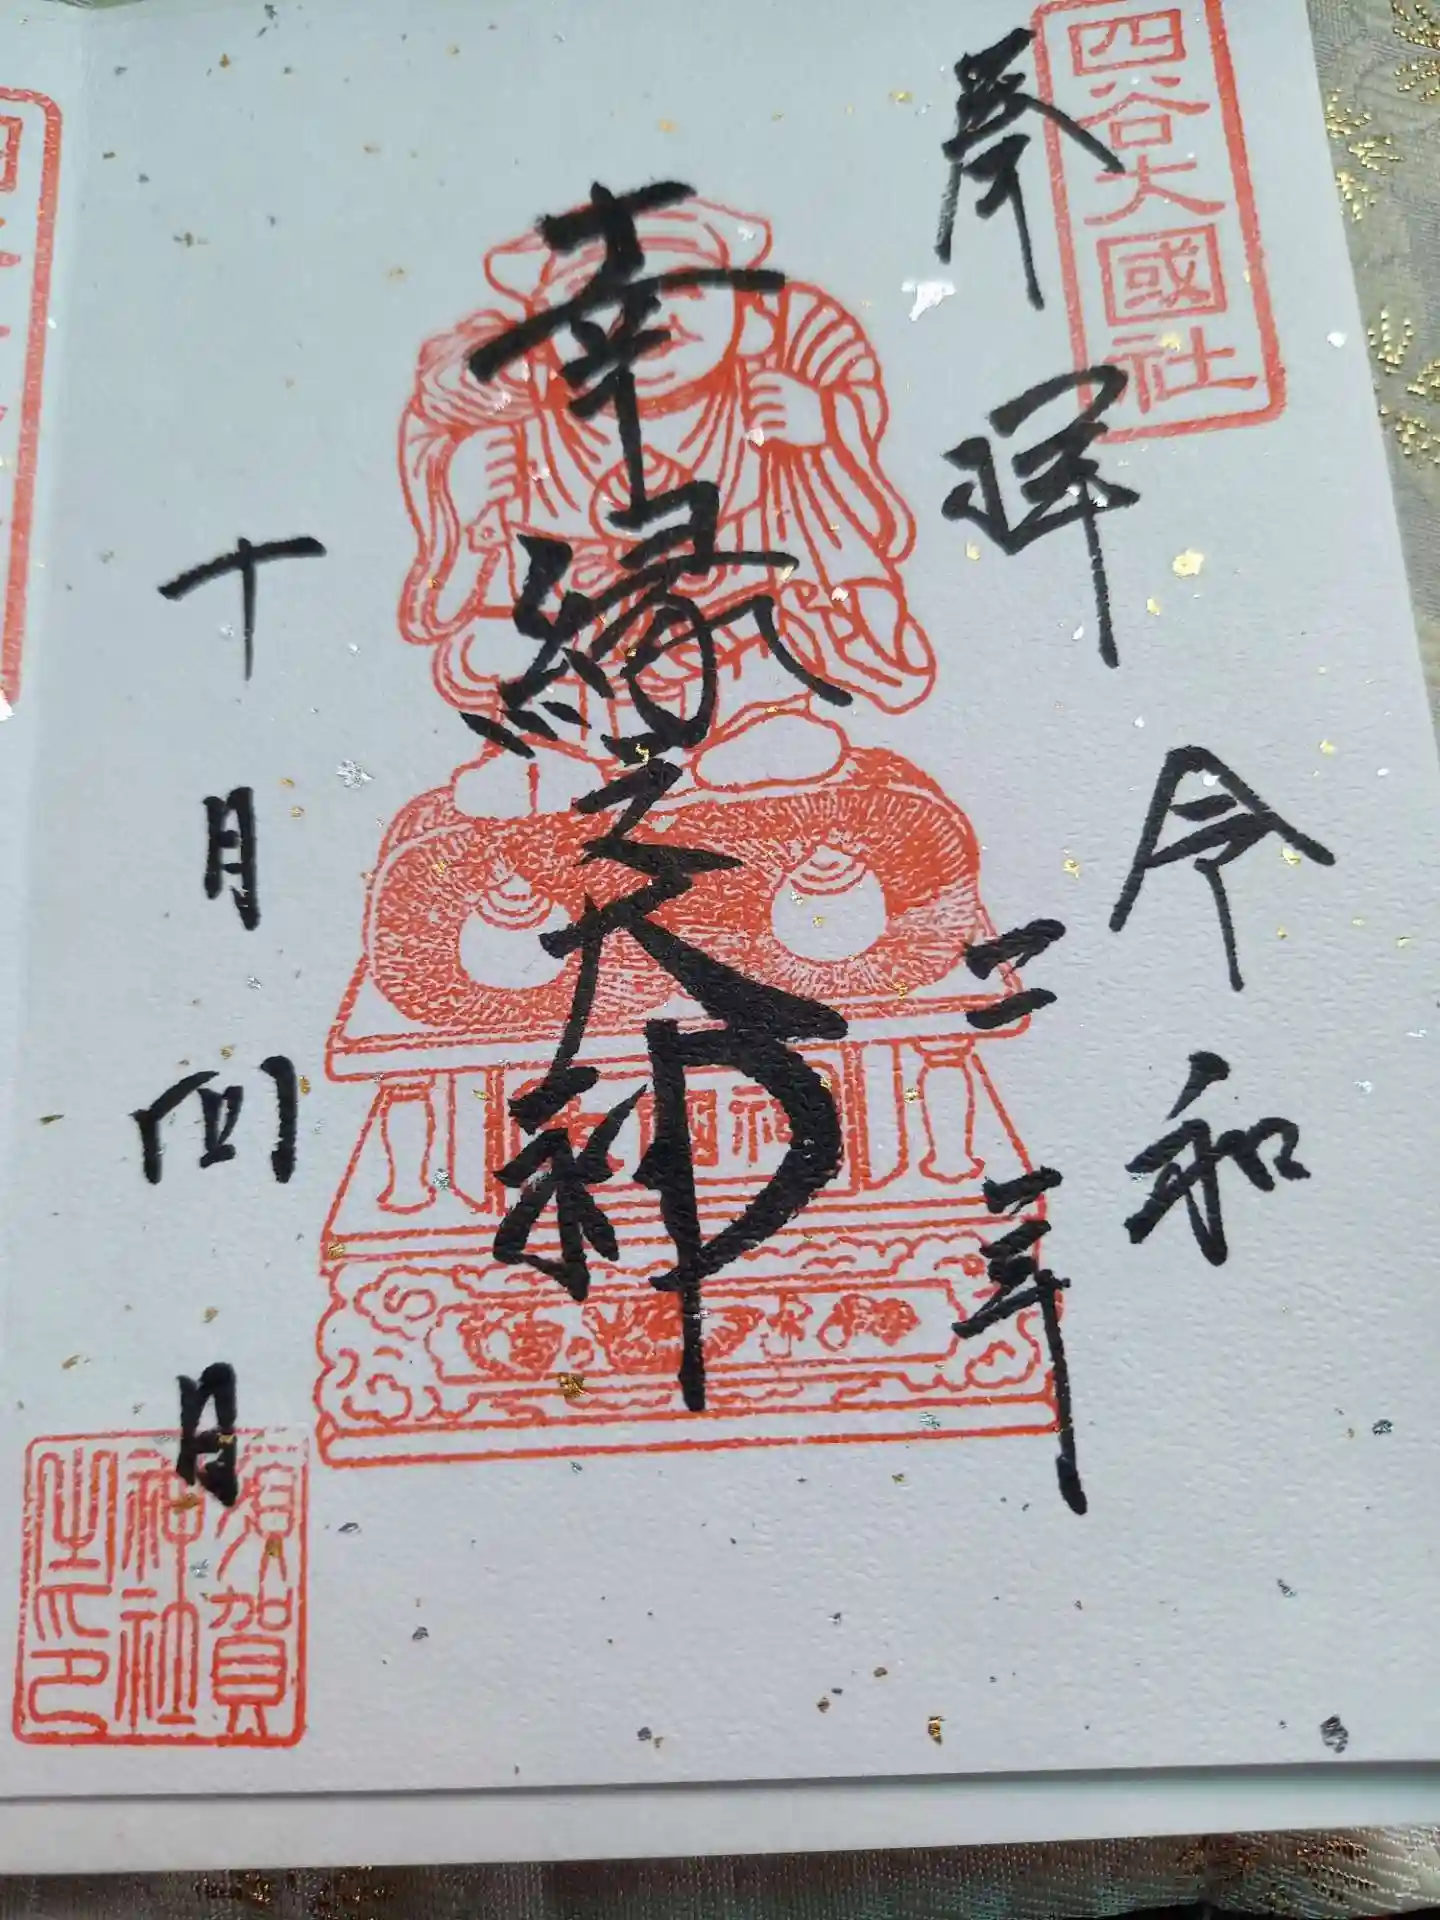 四谷大國社
奉拝
令和二年
幸縁之大神
十月四日
須賀
神社
之印